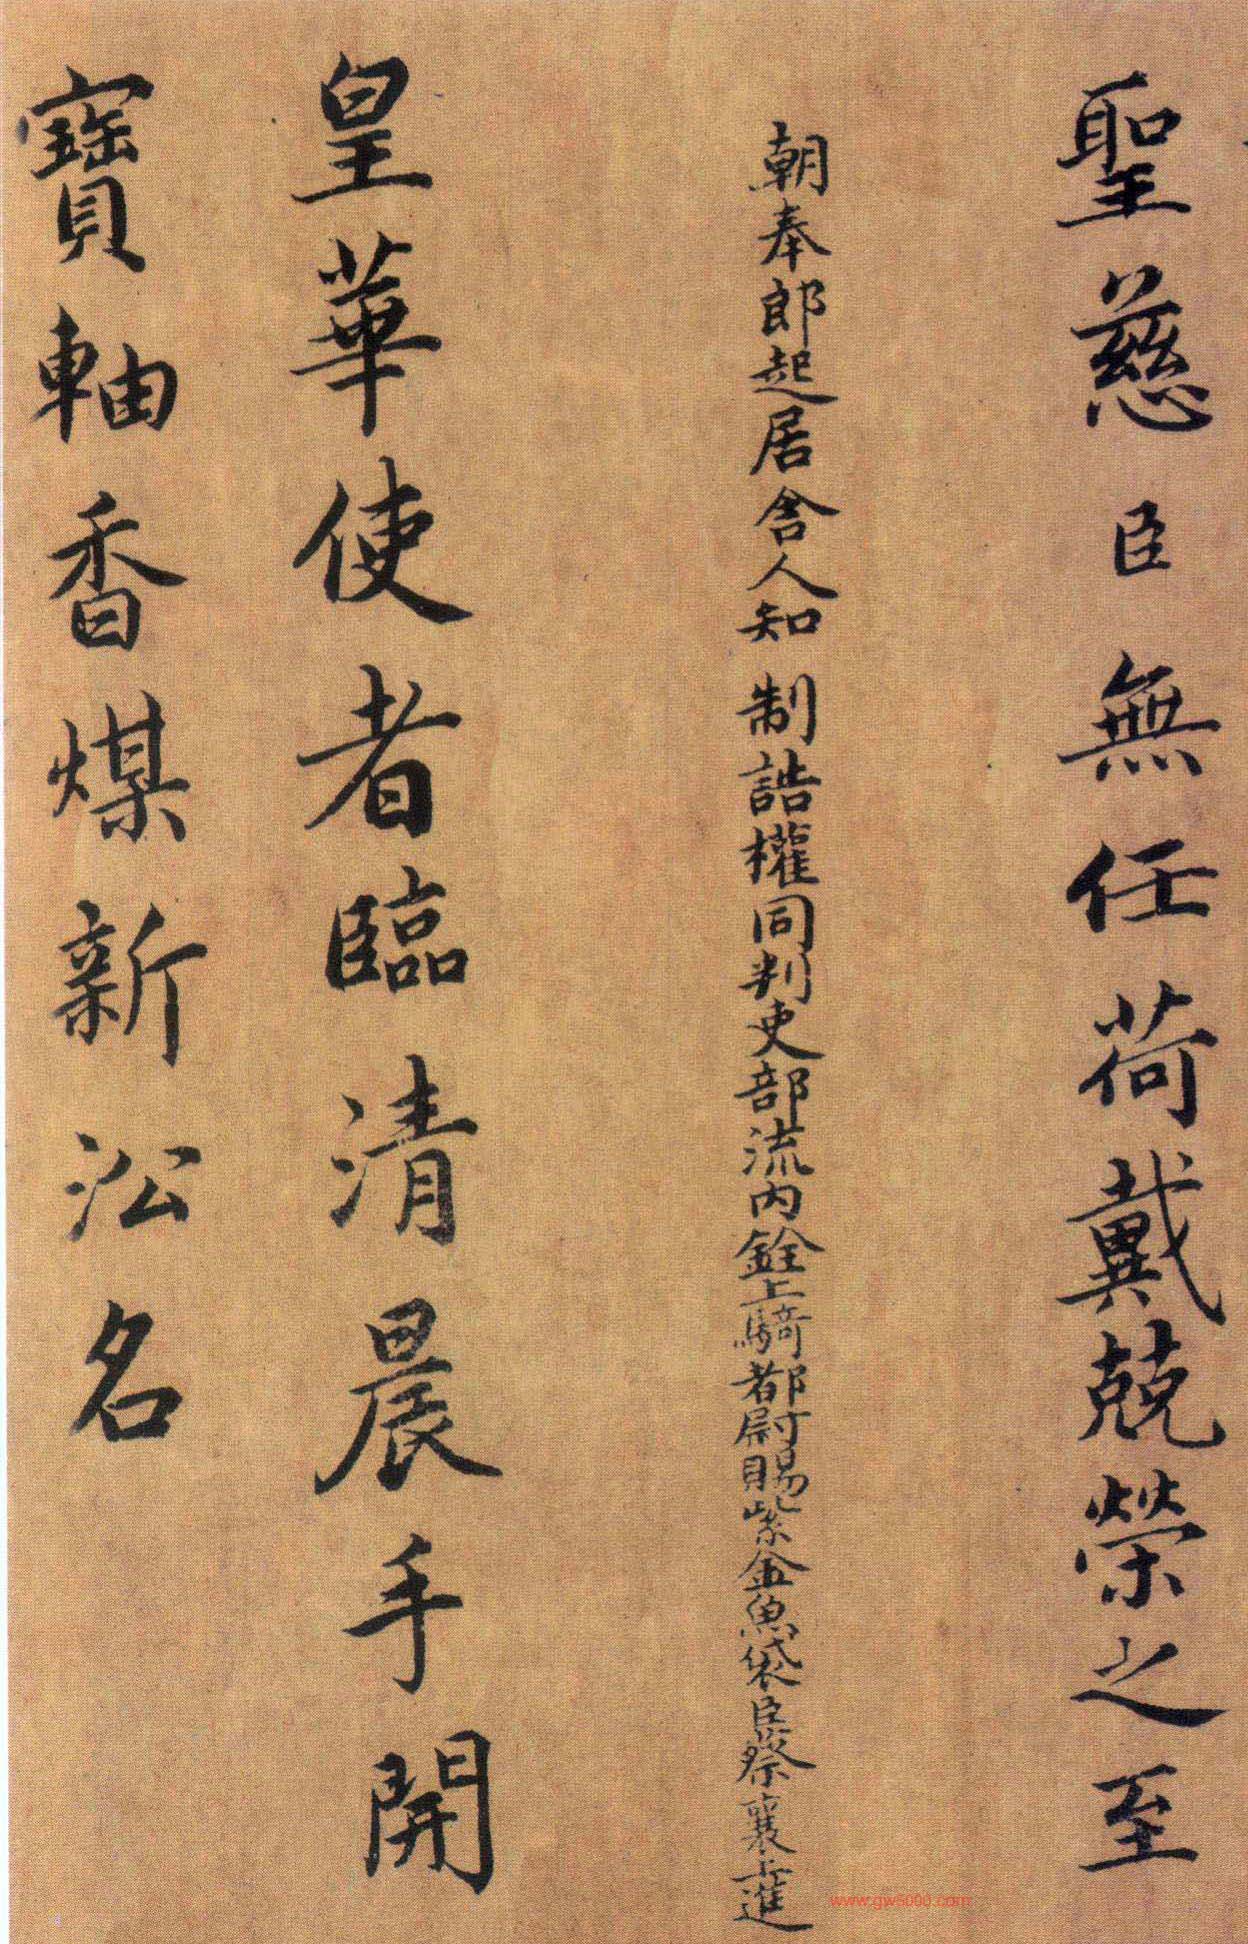 聖慈臣無任荷戴兢榮之至
朝奉郎起居舍人知制誥權同判吏部流內銓上騎都尉賜紫金魚袋臣蔡襄上進
皇華使者臨清晨手開
寶軸香煤新沄名
www.gw5000.com